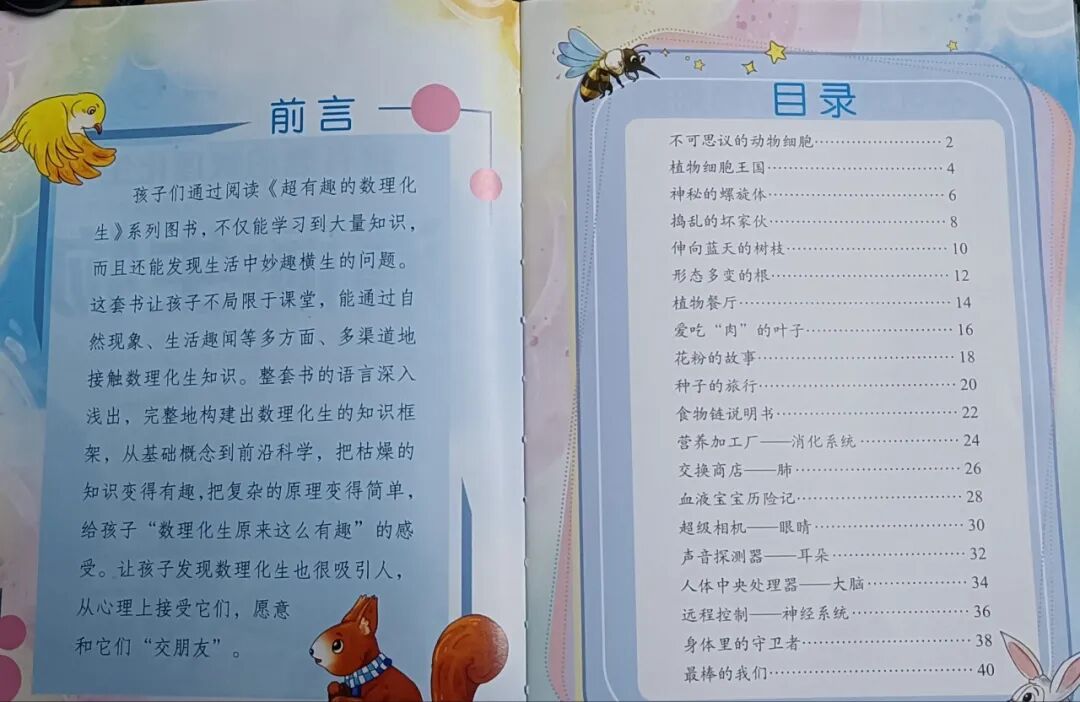 前言
孩子们通过阅读《超有趣的数理化
生》系列图书，不仅能学习到大量知识，
而且还能发现生活中妙趣横生的问题。
这套书让孩子不局限于课堂，能通过自
然现象、生活趣闻等多方面、多渠道地
接触数理化生知识。整套书的语言深入
浅出，完整地构建出数理化生的知识框
架，从基础概念到前沿科学，把枯燥的
知识变得有趣，把复杂的原理变得简单，
给孩子“数理化生原来这么有趣”的感
受。让孩子发现数理化生也很吸引人，
从心理上接受它们，愿意
和它们“交朋友”。
目录
不可思议的动物细胞……………………2
植物细胞王国……………………4
神秘的螺旋体……………………6
捣乱的坏家伙……………………8
伸向蓝天的树枝……………………10
形态多变的根……………………12
植物餐厅……………………14
爱吃“肉”的叶子……………………16
花粉的故事……………………18
种子的旅行……………………20
食物链说明书……………………22
营养加工厂——消化系统……………………24
交换商店——肺……………………26
血液宝宝历险记……………………28
超级相机——眼睛……………………30
声音探测器——耳朵……………………32
人体中央处理器——大脑……………………34
远程控制——神经系统……………………36
身体里的守卫者……………………38
最棒的我们……………………40